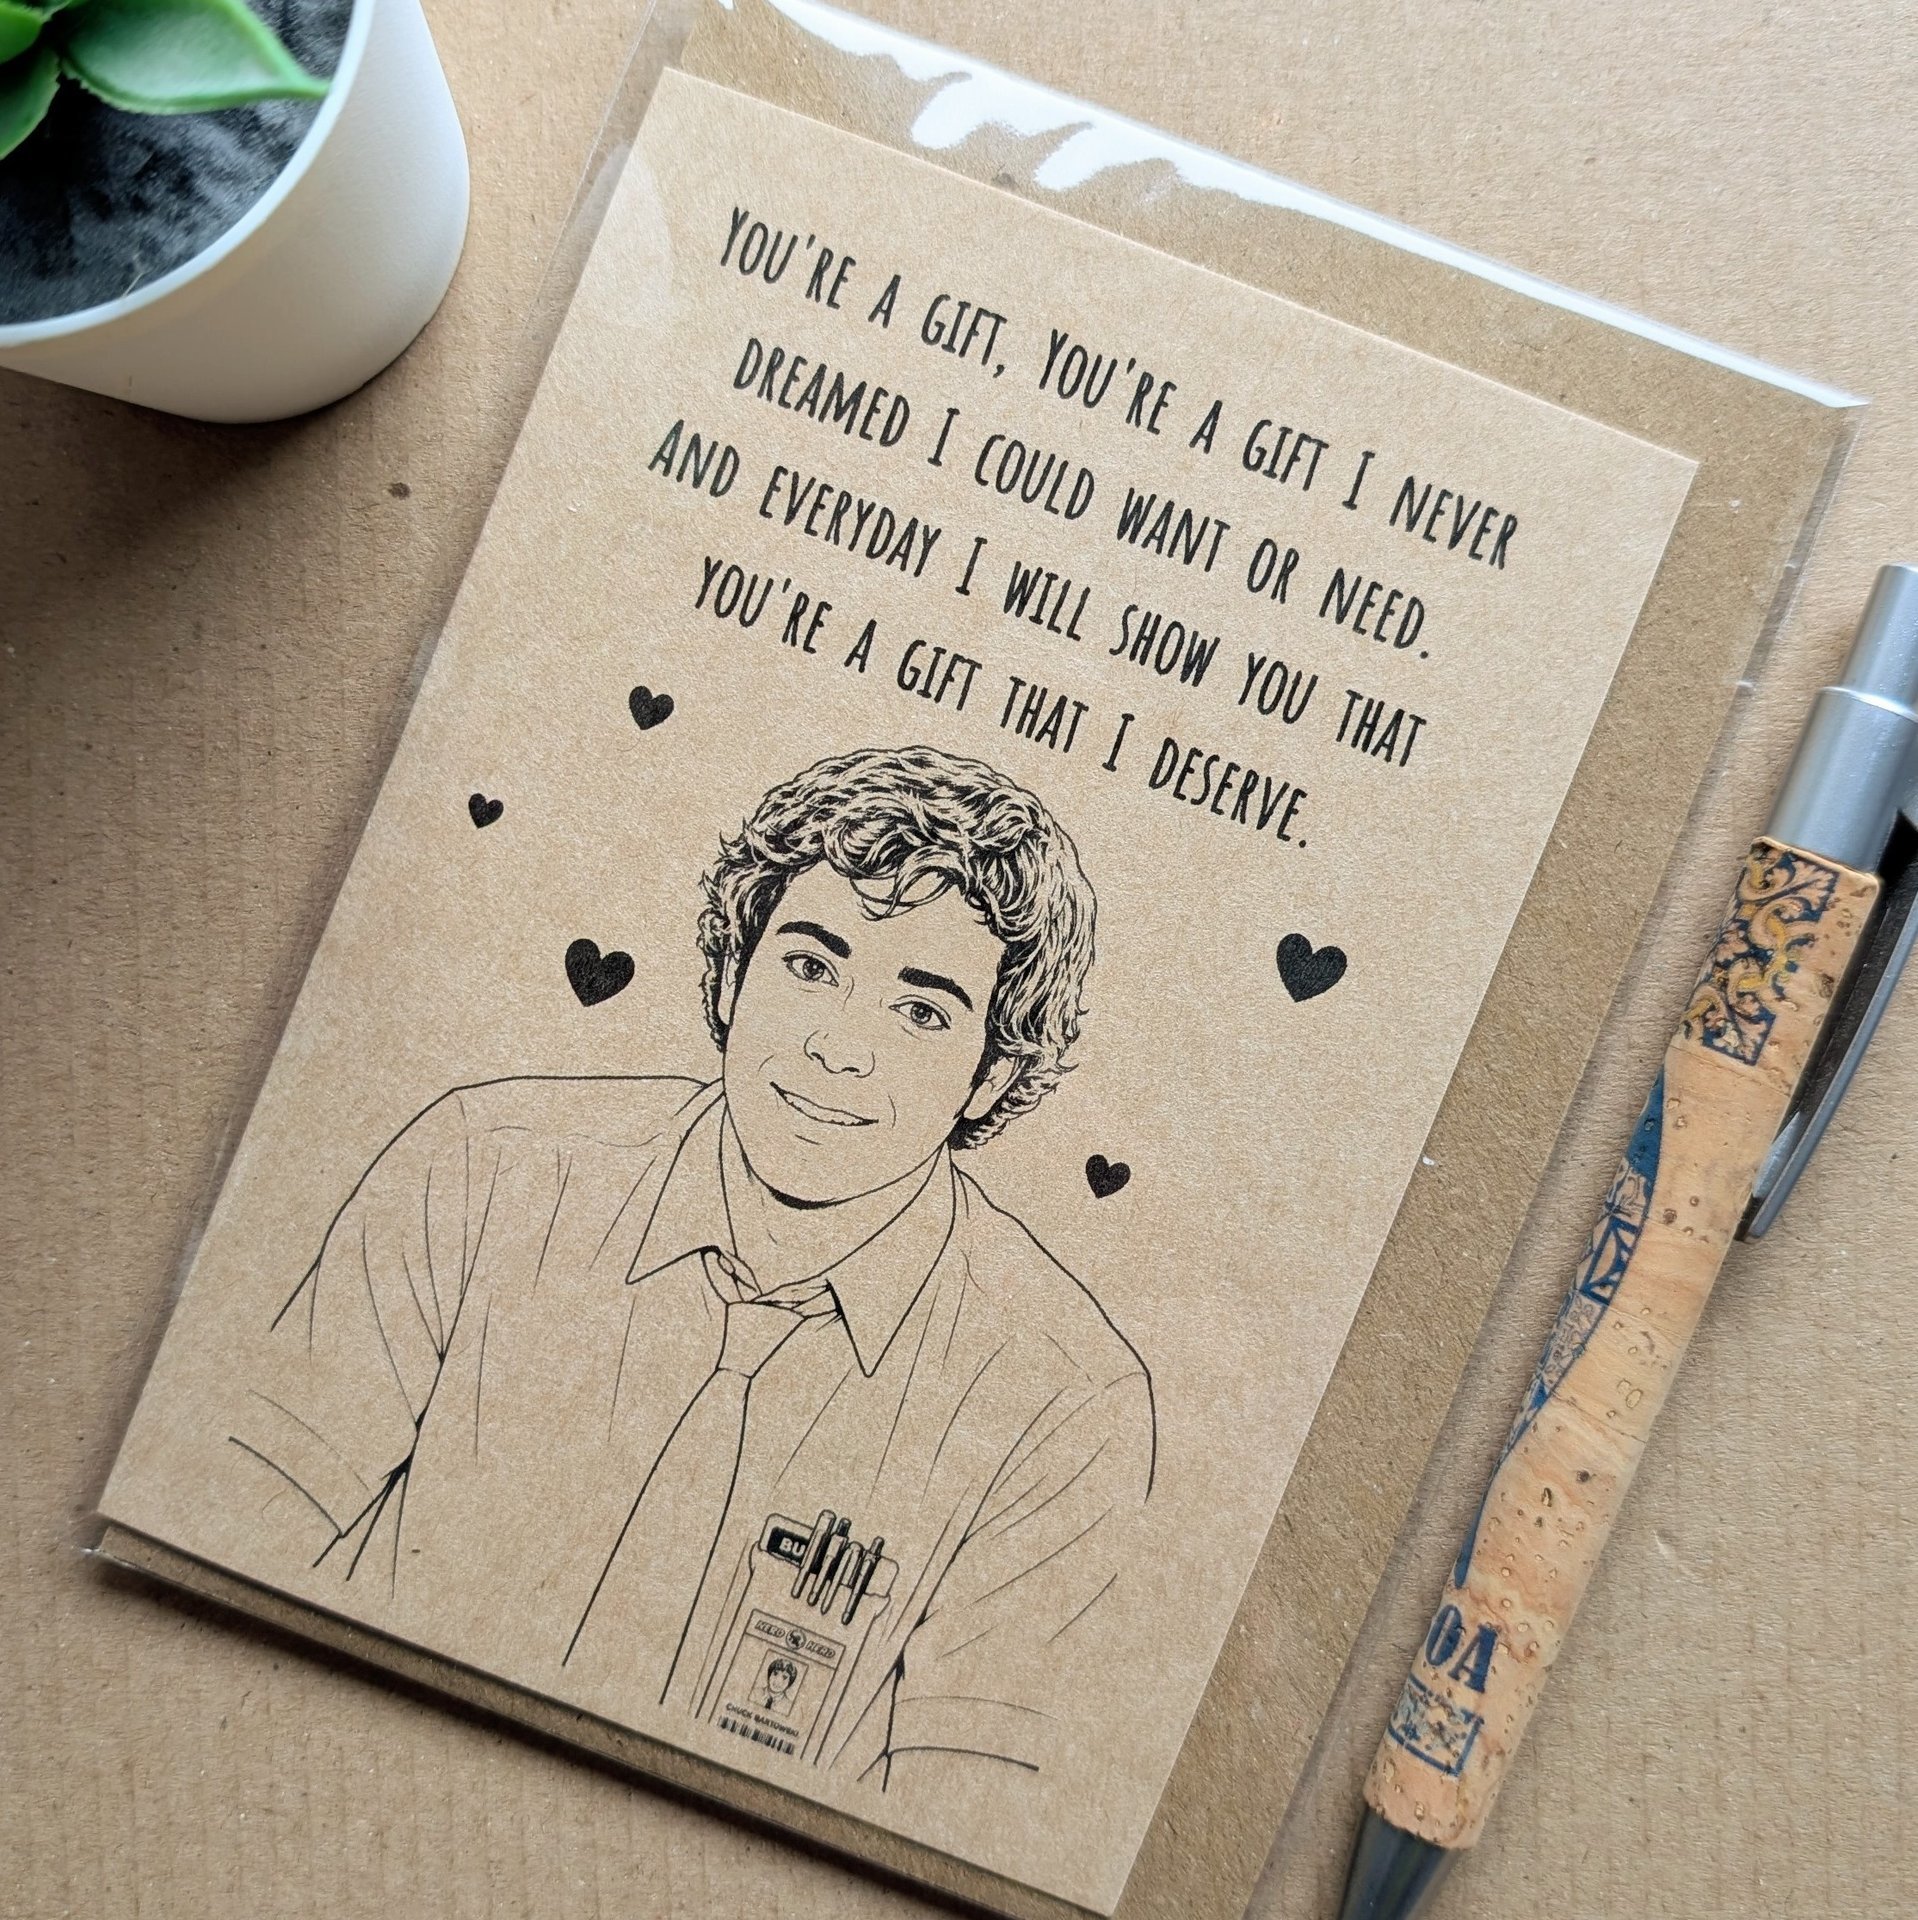 YOU'RE A GIFT, YOU'RE A GIFT I NEVER
DREAMED I COULD WANT OR NEED.
AND EVERYDAY I WILL SHOW YOU THAT
YOU'RE A GIFT THAT I DESERVE.
BU
NERD NERD
CHUCK BARTOWSKI
OA